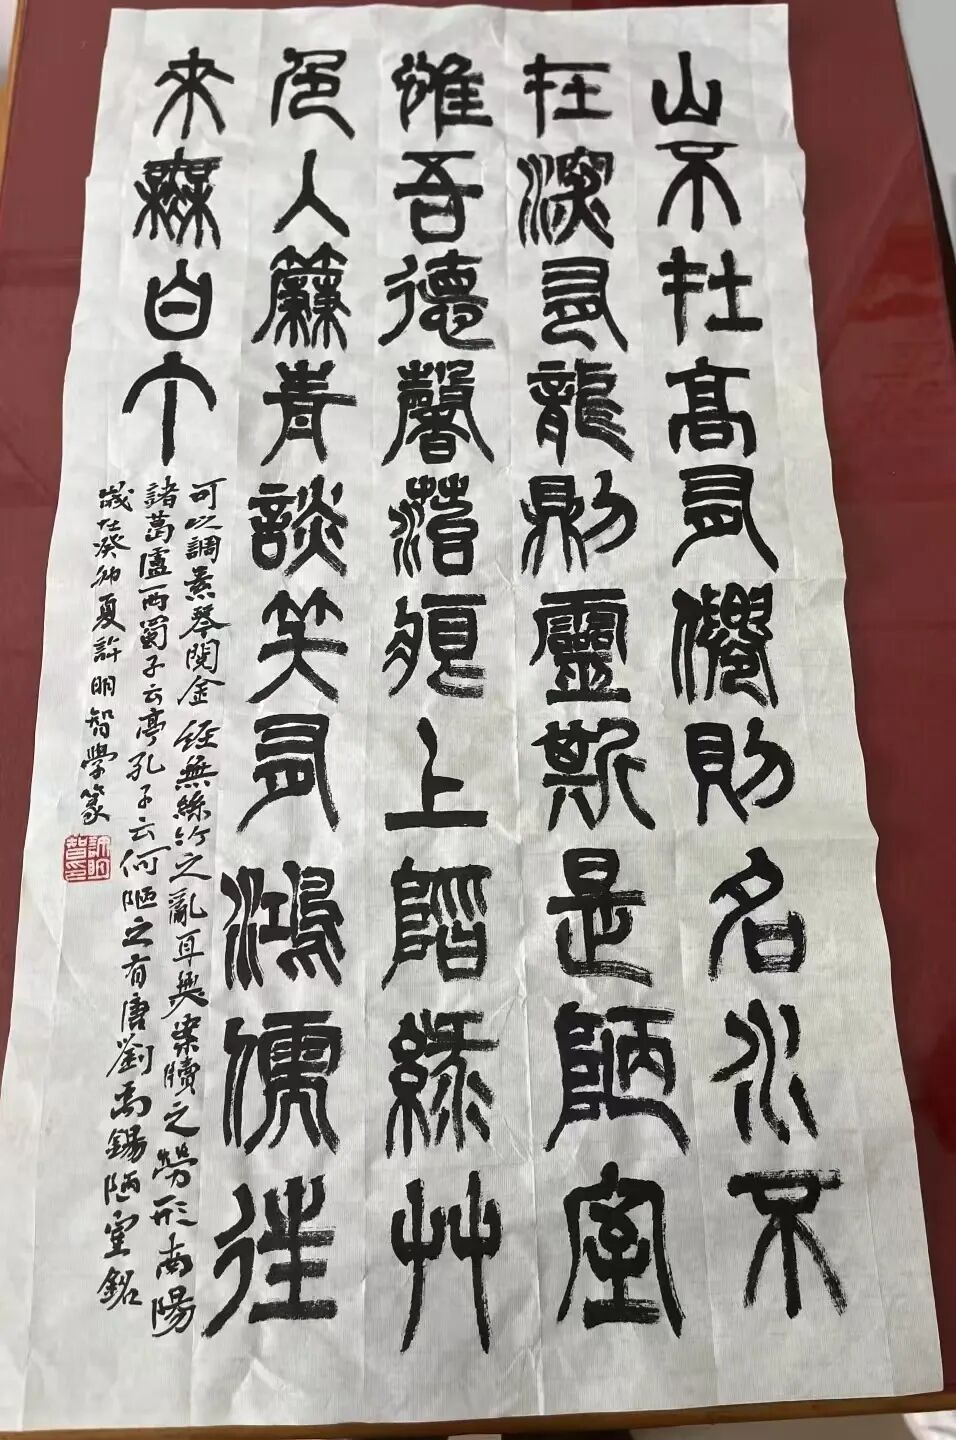 山不在高有僊則名水不
在深有龍則靈斯是陋室
惟吾德馨菭痕上階綠艸
色入簾青談笑有鴻儒往
來無白丁
可以調素琴閱金經無絲竹之亂耳無案牘之勞形南陽
諸葛廬西蜀子云亭孔子云何陋之有唐劉禹錫陋室銘
歲在癸卯夏許明智學篆
許明智印